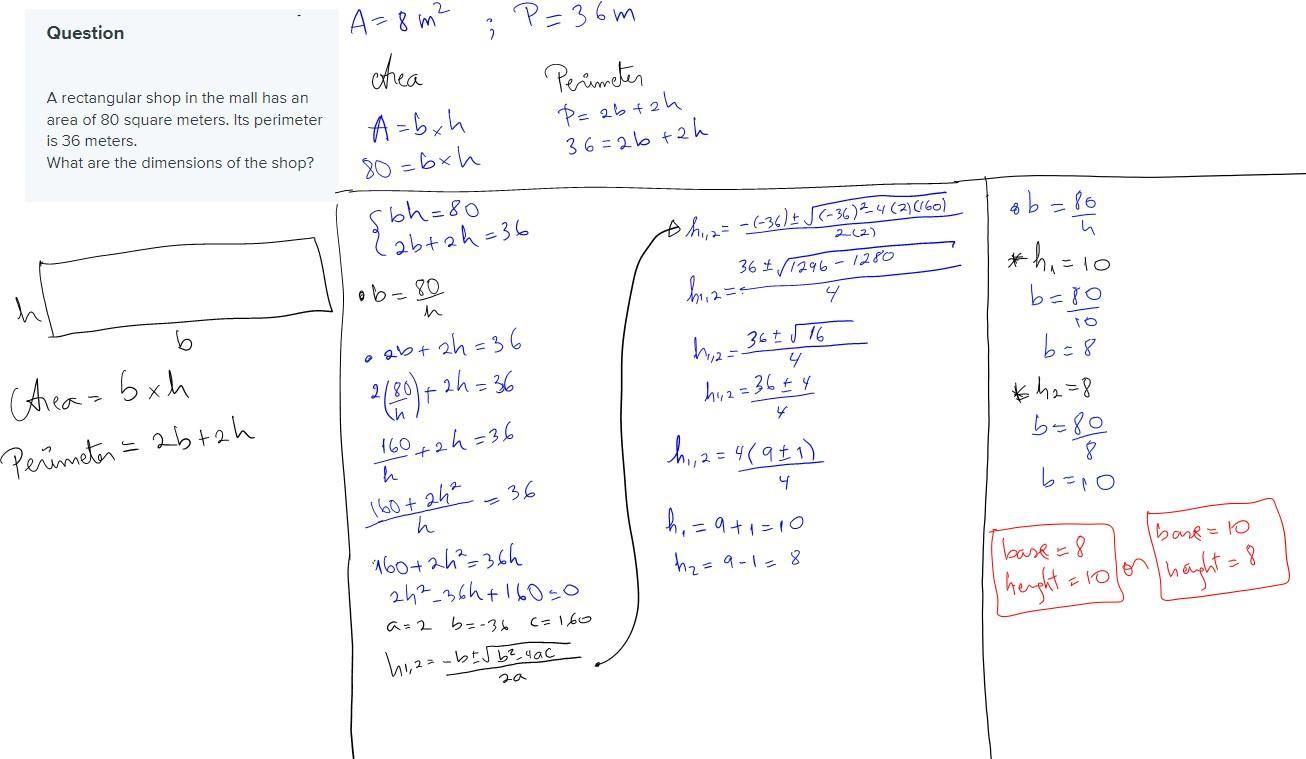 Question
A rectangular shop in the mall has an
area of 80 square meters. Its perimeter
is 36 meters.
What are the dimensions of the shop?
A = 8 m² ; P = 36 m
Area
A = b × h
80 = b × h
Perimeter
P = 2b + 2h
36 = 2b + 2h
h
b
Area = b × h
Perimeter = 2b + 2h
{ bh = 80
2b + 2h = 36
• b = 80/h
• 2b + 2h = 36
2(80/h) + 2h = 36
160/h + 2h = 36
(160 + 2h²)/h = 36
160 + 2h² = 36h
2h² - 36h + 160 = 0
a = 2 b = -36 c = 160
h1,2 = (-b ± √(b² - 4ac))/2a
h1,2 = (-(-36) ± √((-36)² - 4(2)(160)))/2(2)
h1,2 = (36 ± √(1296 - 1280))/4
h1,2 = (36 ± √16)/4
h1,2 = (36 ± 4)/4
h1,2 = 4(9 ± 1)/4
h₁ = 9 + 1 = 10
h₂ = 9 - 1 = 8
• b = 80/h
* h₁ = 10
b = 80/10
b = 8
* h₂ = 8
b = 80/8
b = 10
base = 8
height = 10
or
base = 10
height = 8